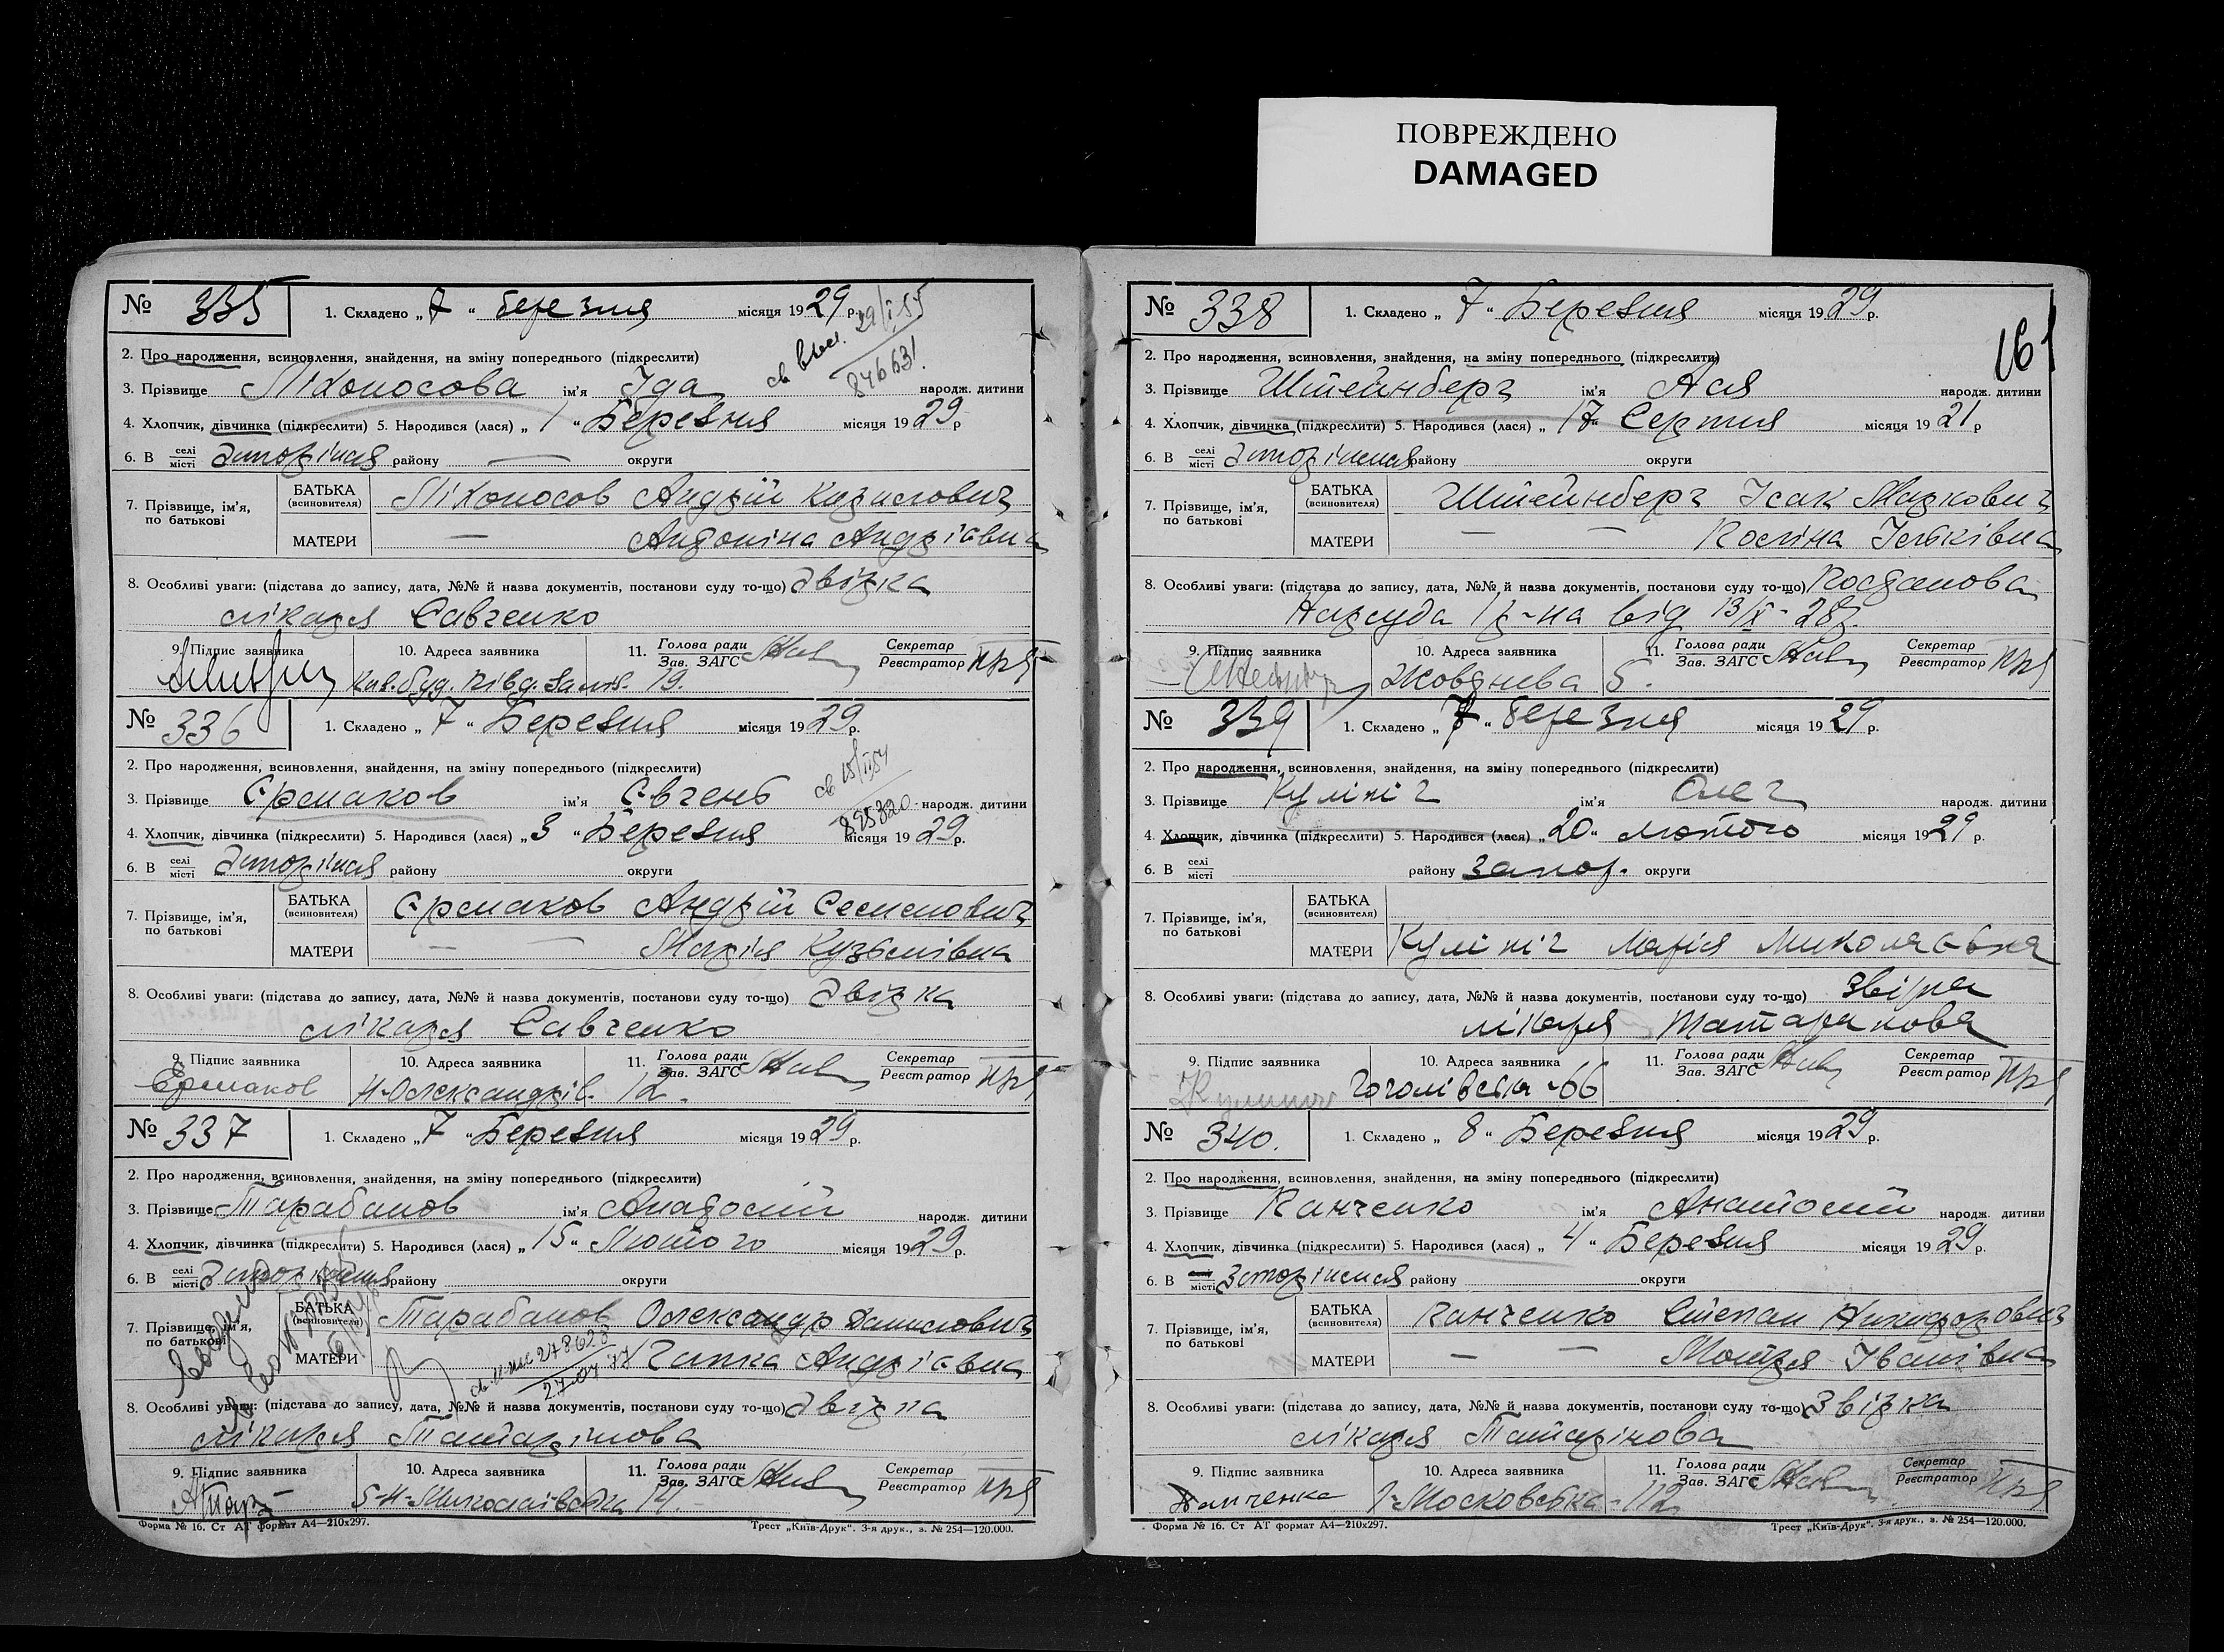 ПОВРЕЖДЕНО
DAMAGED
№ 335
1. Складено „ 7 “ березня місяця 1929 р.
2. Про народження, всиновлення, знайдення, на зміну попереднього (підкреслити)
3. Прізвище Ліхоносова ім'я Іда народж. дитини
846631
4. Хлопчик, дівчинка (підкреслити) 5. Народився (лася) „ 1 “ Березня місяця 1929 р
6. В селі місті Запоріжжя району — округи
7. Прізвище, ім'я, по батькові
БАТЬКА (всиновителя) Ліхоносов Андрій Кирилович
МАТЕРИ — Антоніна Андріївна
8. Особливі уваги: (підстава до запису, дата, №№ й назва документів, постанови суду то-що) Звірка
лікаря Савченко
9. Підпис заявника 10. Адреса заявника 11. Голова ради Зав. ЗАГС Секретар Реєстратор
19.
№ 336
1. Складено „ 7 “ Березня місяця 1929 р.
2. Про народження, всиновлення, знайдення, на зміну попереднього (підкреслити)
3. Прізвище Єрмаков ім'я Євгень народж. дитини
825320
4. Хлопчик, дівчинка (підкреслити) 5. Народився (лася) „ 3 “ Березня місяця 1929 р.
6. В селі місті Запоріжжя району округи
7. Прізвище, ім'я, по батькові
БАТЬКА (всиновителя) Єрмаков Андрій Семенович
МАТЕРИ — — Марія Кузьмівна
8. Особливі уваги: (підстава до запису, дата, №№ й назва документів, постанови суду то-що) Звірка
лікаря Савченко
9. Підпис заявника 10. Адреса заявника 11. Голова ради Зав. ЗАГС Секретар Реєстратор
Ермаков Н-Олександрів. 12.
№ 337
1. Складено „ 7 “ Березня місяця 1929 р.
2. Про народження, всиновлення, знайдення, на зміну попереднього (підкреслити)
3. Прізвище Тарабанов ім'я Анатолій народж. дитини
4. Хлопчик, дівчинка (підкреслити) 5. Народився (лася) „ 15 “ Лютого місяця 1929 р.
6. В селі місті Запоріжжя району округи
7. Прізвище, ім'я, по батькові
БАТЬКА (всиновителя) Тарабанов Олександр Данилович
МАТЕРИ Андріївна
278628
27.07.77
8. Особливі уваги: (підстава до запису, дата, №№ й назва документів, постанови суду то-що) Звірка
лікаря Татарінова
9. Підпис заявника 10. Адреса заявника 11. Голова ради Зав. ЗАГС Секретар Реєстратор
Форма № 16. Ст АТ формат А4—210х297. Трест „Київ-Друк“. 3-я друк., з. № 254—120.000.
161
№ 338
1. Складено „ 7 “ Березня місяця 1929 р.
2. Про народження, всиновлення, знайдення, на зміну попереднього (підкреслити)
3. Прізвище Штейнберг ім'я Ася народж. дитини
4. Хлопчик, дівчинка (підкреслити) 5. Народився (лася) „ 17 “ Серпня місяця 1921 р
6. В селі місті Запоріжжя району округи
7. Прізвище, ім'я, по батькові
БАТЬКА (всиновителя) Штейнберг Ісак Маркович
МАТЕРИ — —
8. Особливі уваги: (підстава до запису, дата, №№ й назва документів, постанови суду то-що) Постанова
Нарсуда 1 р-на від 13/IX-28р.
9. Підпис заявника 10. Адреса заявника 11. Голова ради Зав. ЗАГС Секретар Реєстратор
Жовтнева 5.
№ 339
1. Складено „ 7 “ березня місяця 1929 р.
2. Про народження, всиновлення, знайдення, на зміну попереднього (підкреслити)
3. Прізвище Кулініч ім'я Олег народж. дитини
4. Хлопчик, дівчинка (підкреслити) 5. Народився (лася) „ 20 “ лютого місяця 1929 р.
6. В селі місті району запор. округи
7. Прізвище, ім'я, по батькові
БАТЬКА (всиновителя)
МАТЕРИ Кулініч Марія Миколаєвна
8. Особливі уваги: (підстава до запису, дата, №№ й назва документів, постанови суду то-що) звірка
лікаря
9. Підпис заявника 10. Адреса заявника 11. Голова ради Зав. ЗАГС Секретар Реєстратор
Гоголівська-66
№ 340.
1. Складено „ 8 “ Березня місяця 1929 р.
2. Про народження, всиновлення, знайдення, на зміну попереднього (підкреслити)
3. Прізвище Ганченко ім'я Анатолій народж. дитини
4. Хлопчик, дівчинка (підкреслити) 5. Народився (лася) „ 4 “ Березня місяця 1929 р.
6. В селі місті Запоріжжя району округи
7. Прізвище, ім'я, по батькові
БАТЬКА (всиновителя) Ганченко Степан
МАТЕРИ — — Мотря Іванівна
8. Особливі уваги: (підстава до запису, дата, №№ й назва документів, постанови суду то-що) Звірка
лікаря Татарінова
9. Підпис заявника 10. Адреса заявника 11. Голова ради Зав. ЗАГС Секретар Реєстратор
Московська-112
Форма № 16. Ст АТ формат А4—210х297. Трест „Київ-Друк“. 3-я друк., з. № 254—120.000.